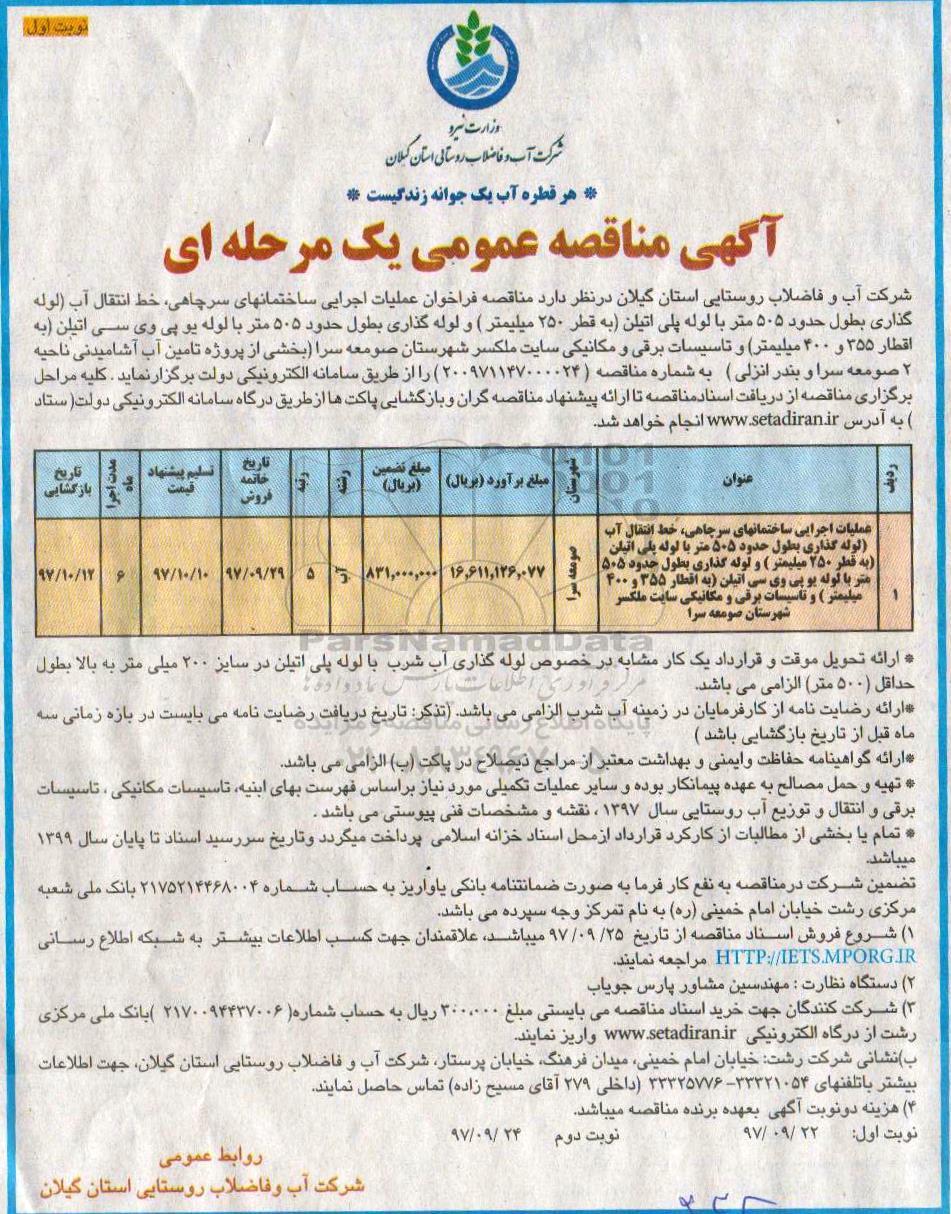 نوبت اول
وزارت نیرو
شرکت آب و فاضلاب روستایی استان گیلان
* هر قطره آب یک جوانه زندگیست *
آگهی مناقصه عمومی یک مرحله ای
شرکت آب و فاضلاب روستایی استان گیلان درنظر دارد مناقصه فراخوان عملیات اجرایی ساختمانهای سرچاهی، خط انتقال آب (لوله
گذاری بطول حدود ۵۰۵ متر با لوله پلی اتیلن (به قطر ۲۵۰ میلیمتر ) و لوله گذاری بطول حدود ۵۰۵ متر با لوله یو پی وی سی اتیلن (به
اقطار ۳۵۵ و ۴۰۰ میلیمتر) و تاسیسات برقی و مکانیکی سایت ملکسر شهرستان صومعه سرا (بخشی از پروژه تامین آب آشامیدنی ناحیه
۲ صومعه سرا و بندر انزلی ) به شماره مناقصه (۲۰۰۹۷۱۱۴۷۰۰۰۰۲۴ ) را از طریق سامانه الکترونیکی دولت برگزارنماید . کلیه مراحل
برگزاری مناقصه از دریافت اسنادمناقصه تا ارائه پیشنهاد مناقصه گران وبازگشایی پاکت ها ازطریق درگاه سامانه الکترونیکی دولت( ستاد
) به آدرس www.setadiran.ir انجام خواهد شد.
ردیف عنوان شهرستان مبلغ برآورد (بریال) مبلغ تضمین (بریال) رشته رتبه تاریخ خاتمه فروش تسلیم پیشنهاد قیمت مدت اجرا ماه تاریخ بازگشایی
۱ عملیات اجرایی ساختمانهای سرچاهی، خط انتقال آب
(لوله گذاری بطول حدود ۵۰۵ متر با لوله پلی اتیلن
(به قطر ۲۵۰ میلیمتر ) و لوله گذاری بطول حدود ۵۰۵
متر با لوله یو پی وی سی اتیلن (به اقطار ۳۵۵ و ۴۰۰
میلیمتر ) و تاسیسات برقی و مکانیکی سایت ملکسر
شهرستان صومعه سرا
صومعه سرا ۱۶,۶۱۱,۱۲۶,۰۷۷ ۸۳۱,۰۰۰,۰۰۰ آب ۵ ۹۷/۰۹/۲۹ ۹۷/۱۰/۱۰ ۶ ۹۷/۱۰/۱۲
ParsNamadData
* ارائه تحویل موقت و قرارداد یک کار مشابه در خصوص لوله گذاری آب شرب با لوله پلی اتیلن در سایز ۲۰۰ میلی متر به بالا بطول
حداقل (۵۰۰ متر) الزامی می باشد.
*ارائه رضایت نامه از کارفرمایان در زمینه آب شرب الزامی می باشد. (تذکر: تاریخ دریافت رضایت نامه می بایست در بازه زمانی سه
ماه قبل از تاریخ بازگشایی باشد )
*ارائه گواهینامه حفاظت وایمنی و بهداشت معتبر از مراجع ذیصلاح در پاکت (ب) الزامی می باشد.
* تهیه و حمل مصالح به عهده پیمانکار بوده و سایر عملیات تکمیلی مورد نیاز براساس فهرست بهای ابنیه، تاسیسات مکانیکی ، تاسیسات
برقی و انتقال و توزیع آب روستایی سال ۱۳۹۷ ، نقشه و مشخصات فنی پیوستی می باشد .
* تمام یا بخشی از مطالبات از کارکرد قرارداد ازمحل اسناد خزانه اسلامی پرداخت میگردد وتاریخ سررسید اسناد تا پایان سال ۱۳۹۹
میباشد.
تضمین شرکت درمناقصه به نفع کار فرما به صورت ضمانتنامه بانکی یاواریز به حساب شماره ۲۱۷۵۲۱۴۴۶۸۰۰۴ بانک ملی شعبه
مرکزی رشت خیابان امام خمینی (ره) به نام تمرکز وجه سپرده می باشد.
۱) شروع فروش اسناد مناقصه از تاریخ ۲۵/ ۰۹/ ۹۷ میباشد، علاقمندان جهت کسب اطلاعات بیشتر به شبکه اطلاع رسانی
HTTP://IETS.MPORG.IR مراجعه نمایند.
۲) دستگاه نظارت : مهندسین مشاور پارس جویاب
۳) شرکت کنندگان جهت خرید اسناد مناقصه می بایستی مبلغ ۳۰۰،۰۰۰ ریال به حساب شماره( ۲۱۷۰۰۹۴۴۳۷۰۰۶ )بانک ملی مرکزی
رشت از درگاه الکترونیکی www.setadiran.ir واریز نمایند.
ب)نشانی شرکت رشت: خیابان امام خمینی، میدان فرهنگ، خیابان پرستار، شرکت آب و فاضلاب روستایی استان گیلان، جهت اطلاعات
بیشتر باتلفنهای ۳۳۳۲۱۰۵۴- ۳۳۳۲۵۷۷۶ (داخلی ۲۷۹ آقای مسیح زاده) تماس حاصل نمایند.
۴) هزینه دونوبت آگهی بعهده برنده مناقصه میباشد.
نوبت اول: ۲۲ /۰۹ /۹۷ نوبت دوم ۲۴ /۹۷/۰۹
روابط عمومی
شرکت آب وفاضلاب روستایی استان گیلان